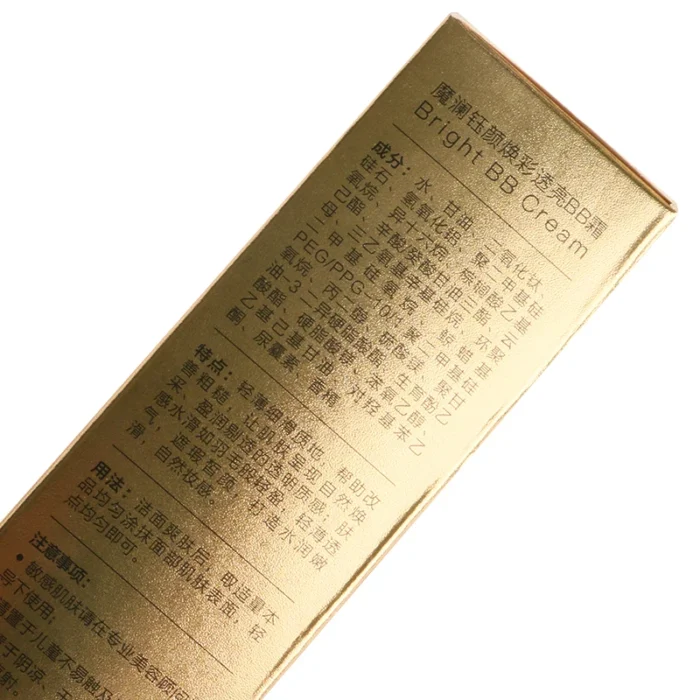 魔澜钰颜焕彩透亮BB霜
Bright BB Cream
成分：水、甘油、二氧化钛、
硅石、氢氧化铝、聚二甲基硅
氧烷、异十六烷、棕榈酸乙基
己酯、辛酸癸酸甘油三酯、云
母、三乙氧基辛基硅烷、环聚
二甲基硅氧烷、蜂蜡、
PEG/PPG-10/1聚二甲基硅
氧烷、丙二醇、硫酸镁、聚甘
油-3二异硬脂酸酯、生育酚乙
酸酯、硬脂酸镁、苯氧乙醇、
乙基己基甘油、对羟基苯乙
酮、尿囊素、香精
特点：轻薄细滑质地，帮助改
善粗糙，让肌肤呈现自然焕
采、盈润剔透的透明质感，肤
感水滑如羽毛般轻盈，轻薄透
气，遮瑕皙颜，打造水润嫩
滑，自然妆感。
用法：洁面爽肤后，取适量本
品均匀涂抹面部肌肤表面，轻
点均匀即可。
注意事项：
• 敏感肌肤请在专业美容顾问
号下使用；
置于儿童不易触及
于阴凉、干
射。